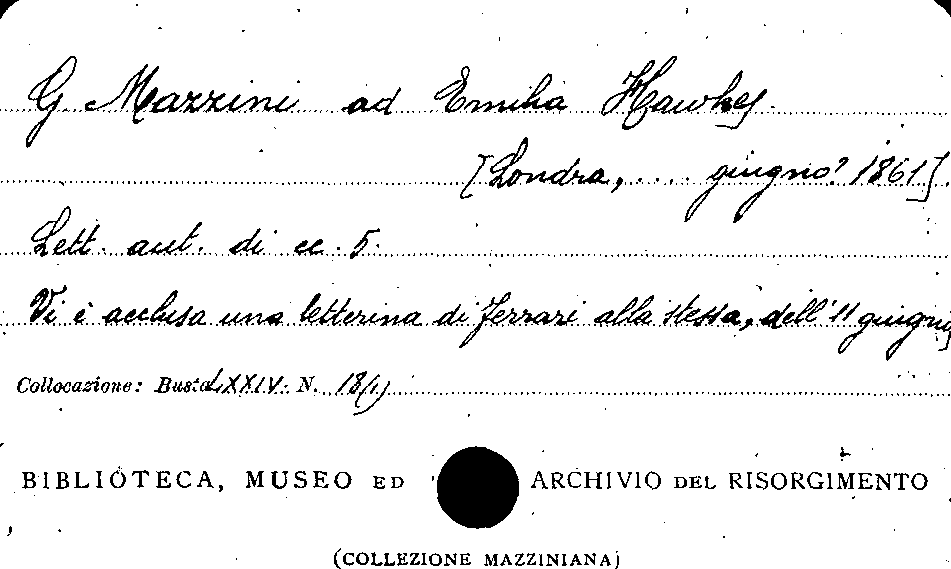 G. Mazzini ad Emilia Hawkes.
[Londra, .... giugno? 1861].
Lett. aut. di cc. 5.
Vi è acclusa una letterina di Ferrari alla stessa, dell'11 giugno
Collocazione: Busta LXXIV. N. 18(1)
BIBLIOTECA, MUSEO ED ARCHIVIO DEL RISORGIMENTO
(COLLEZIONE MAZZINIANA)